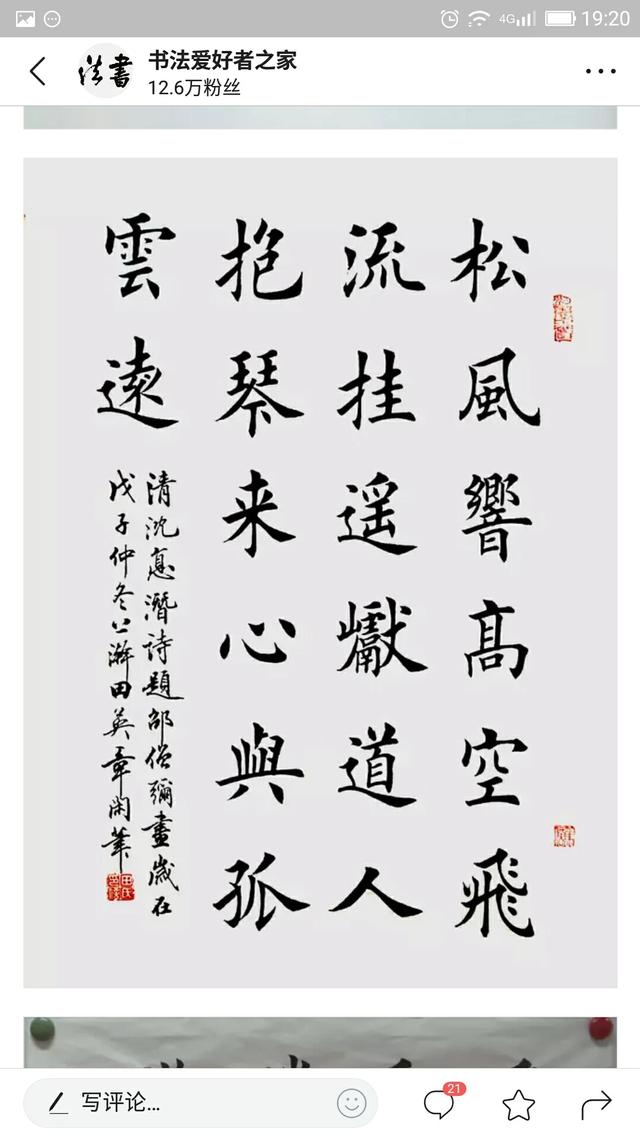 19:20
4G
书法爱好者之家
12.6万粉丝
松風響高空飛
流挂遥巘道人
抱琴来心與孤
雲遠
清沈悳潛詩題邵僧彌畫歲在
戊子仲冬公㵐田英章閑筆
写评论…
21